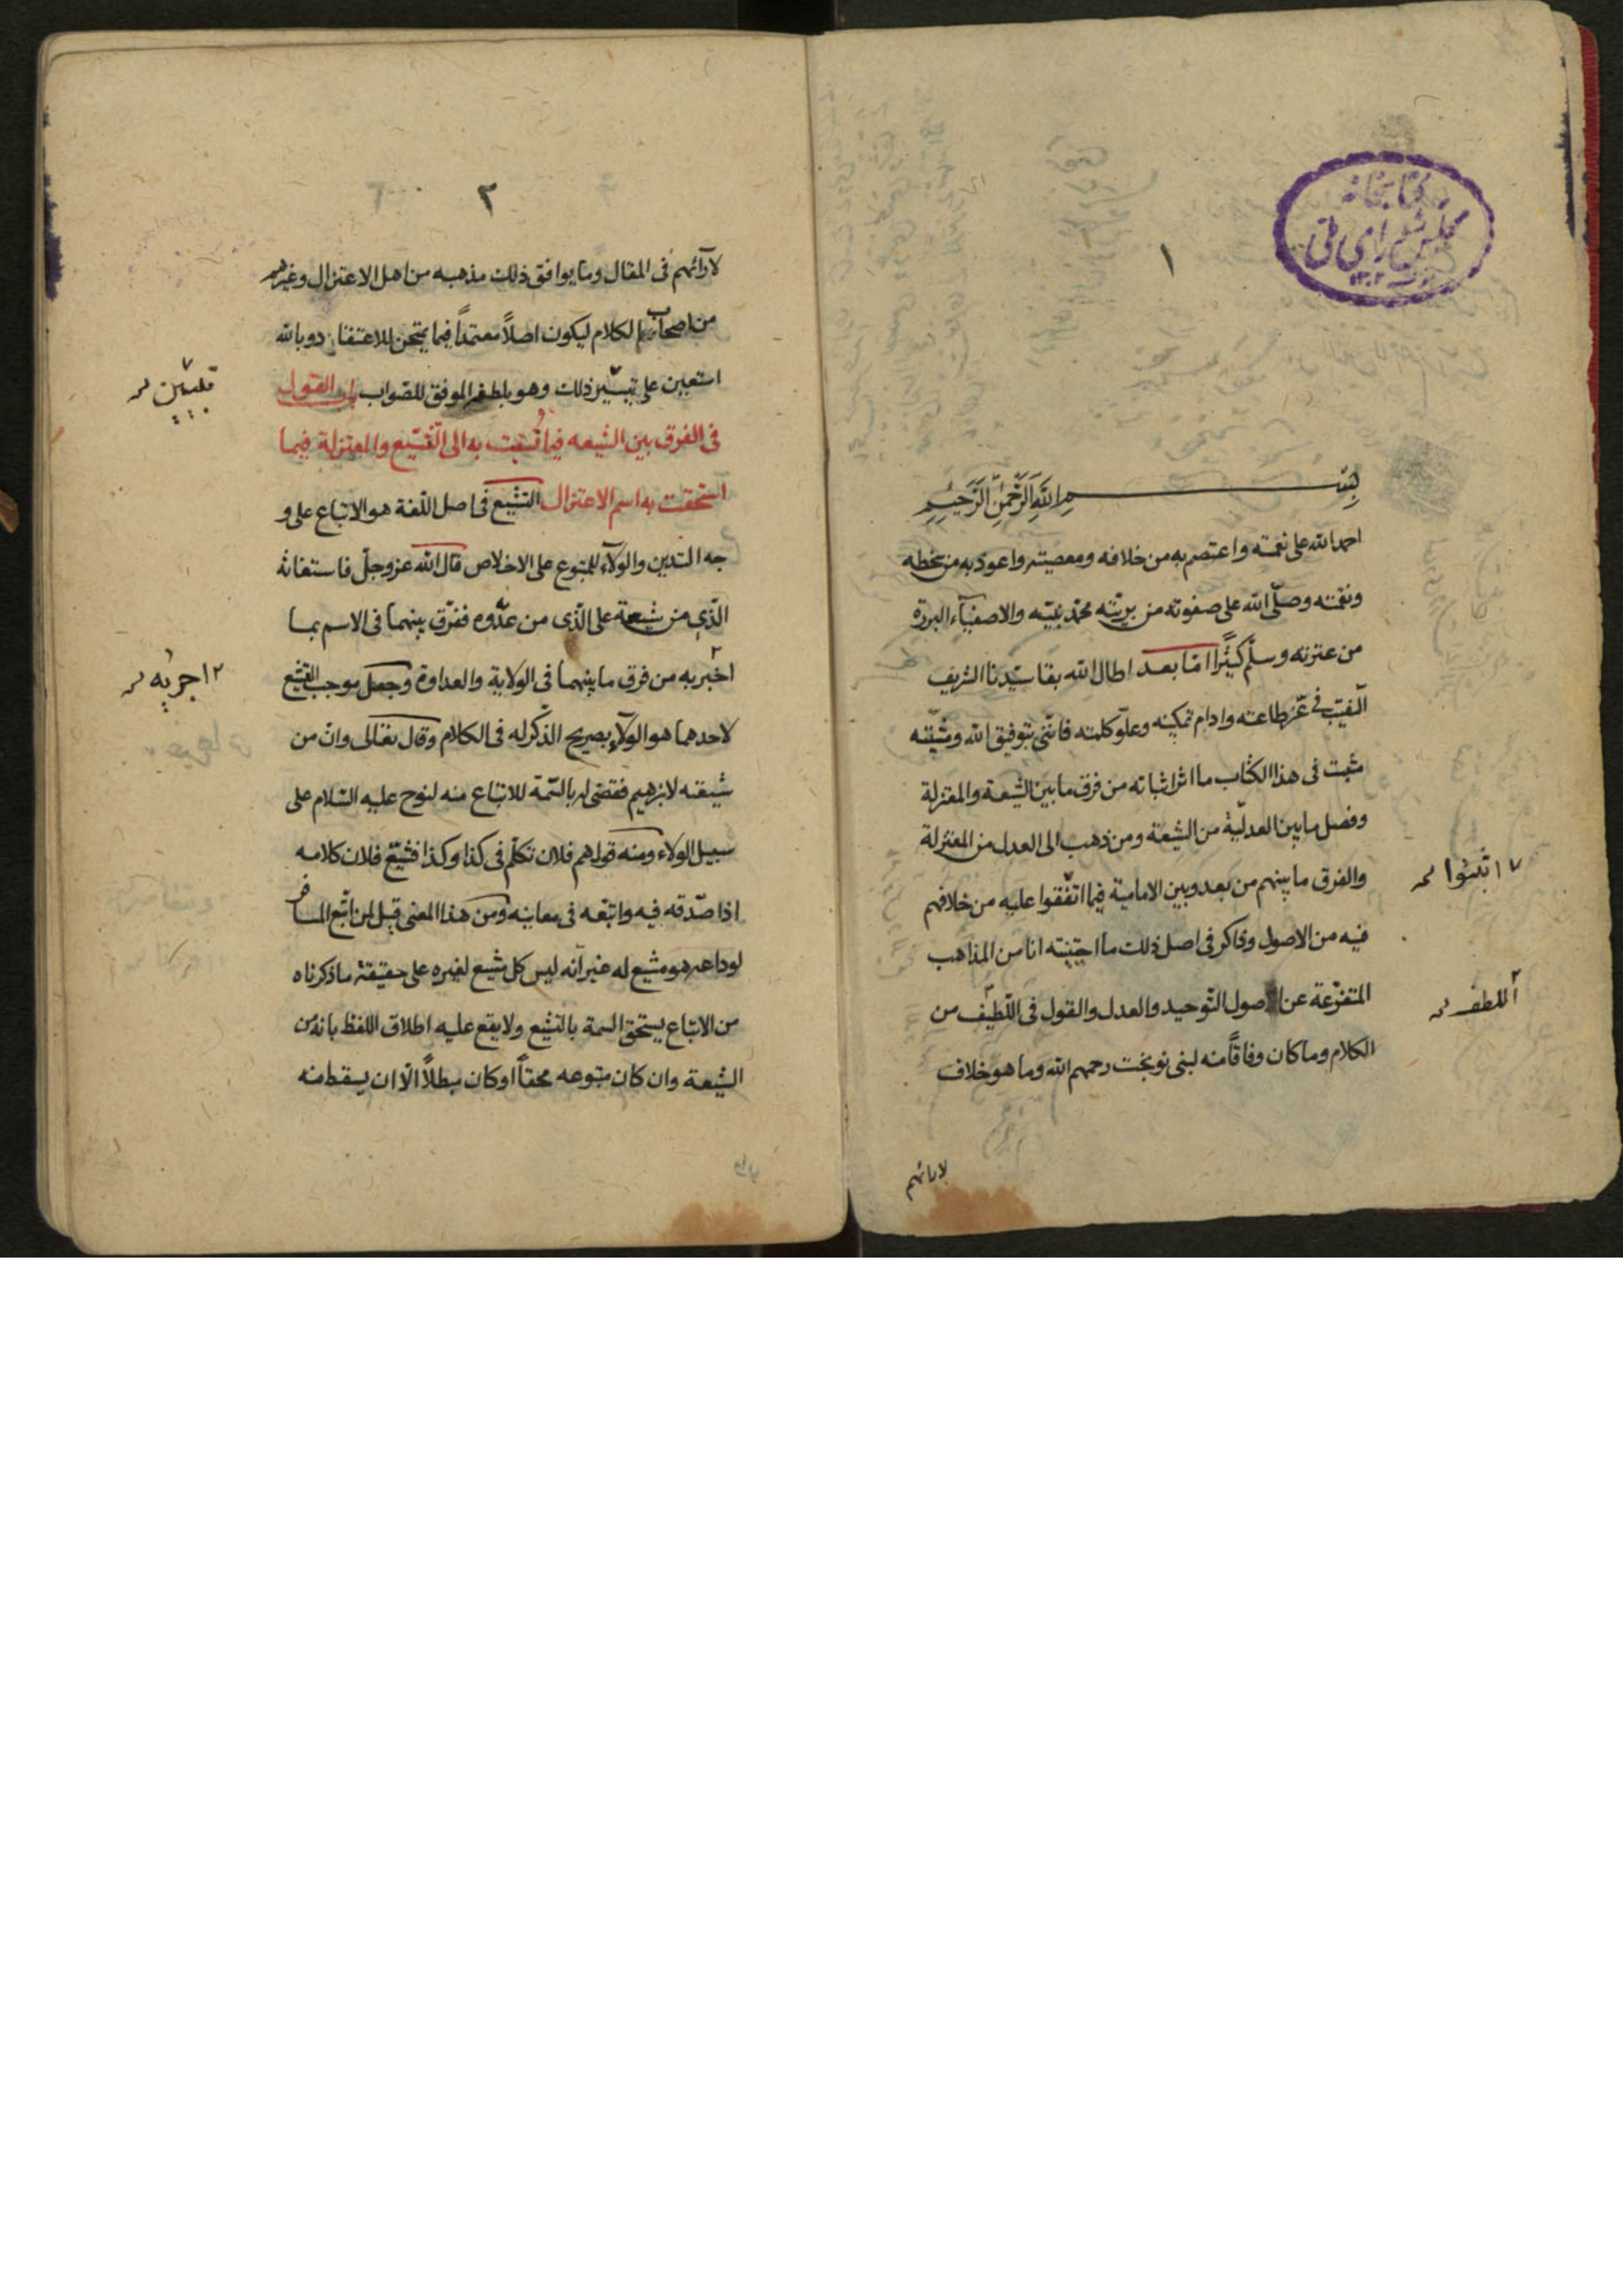 كتابخانه
مجلس شورای ملی
١
بسم الله الرحمن الرحیم
احمد الله علی نعمته واعتصم به من خلافه ومعصیته واعوذ به من سخطه
ونقمته وصلّی الله علی صفوته من بریّته محمّد نبیّه والاصفیآء البررة
من عترته وسلّم كثیرًا امّا بعد اطال الله بقا سیّدنا الشریف
النّقیب فی عزّ طاعته وادام تمكینه وعلوّ كلمته فانّنی بتوفیق الله ومشیّته
مثبت فی هذا الكتاب ما اثر اثباته من فرق ما بین الشیعة والمعتزلة
وفصل ما بین العدلیّة من الشیعة ومن ذهب الی العدل من المعتزلة
والفرق ما بینهم من بعد وبین الامامیة فیما اتّفقوا علیه من خلافهم
فیه من الاصول وذاكر فی اصل ذلك ما اجتبیته انا من المذاهب
المتفرّعة عن اصول التّوحید والعدل والقول فی اللّطیف من
الكلام وما كان وفاقًا منه لبنی نوبخت رحمهم الله وما هو خلاف
لارائهم
٢
لآرائهم فی المقال وما یوافق ذلك مذهبه من اهل الاعتزال وغیرهم
من اصحاب الكلام لیكون اصلًا معتمدًا فیما یمتحن للاعتقاد وبالله
استعین علی تیسّیر ذلك وهو بلطفه الموفق للصّواب باب القول
فی الفرق بین الشیعه فیما نسبت به الی التّشیّع والمعتزلة فیما
استحقت به اسم الاعتزال التشیّع فی اصل اللّغة هو الاتباع علی و
جه التدین والولآء للمتبوع علی الاخلاص قال الله عزوجلّ فاستغاثه
الّذی من شیعته علی الّذی من عدّوه ففرّق بینهما فی الاسم بما
اخبر به من فرق ما بینهما فی الولایة والعداوة وجعل موجب التشّیع
لاحدهما هو الولآء بصریح الذّكر له فی الكلام وقال تعالی وانّ من
شیعته لابرهیم فقضی له بالسّمة للاتباع منه لنوح علیه السّلام علی
سبیل الولاء ومنه قولهم فلان تكلّم فی كذا وكذا فشیّع فلان كلامه
اذا صدّقه فیه واتبّعه فی معانیه ومن هذا المعنی قیل لمن اتّبع المسافر
لوداعه هو مشیع له غیر انّه لیس كل مشیع لغیره علی حقیقة ما ذكرناه
من الاتباع یستحق السمة بالتشیع ولا یقع علیه اطلاق اللفظ بانه من
الشیعة وان كان متبوعه محقاً او كان مبطلاً الّا ان یسقط منه